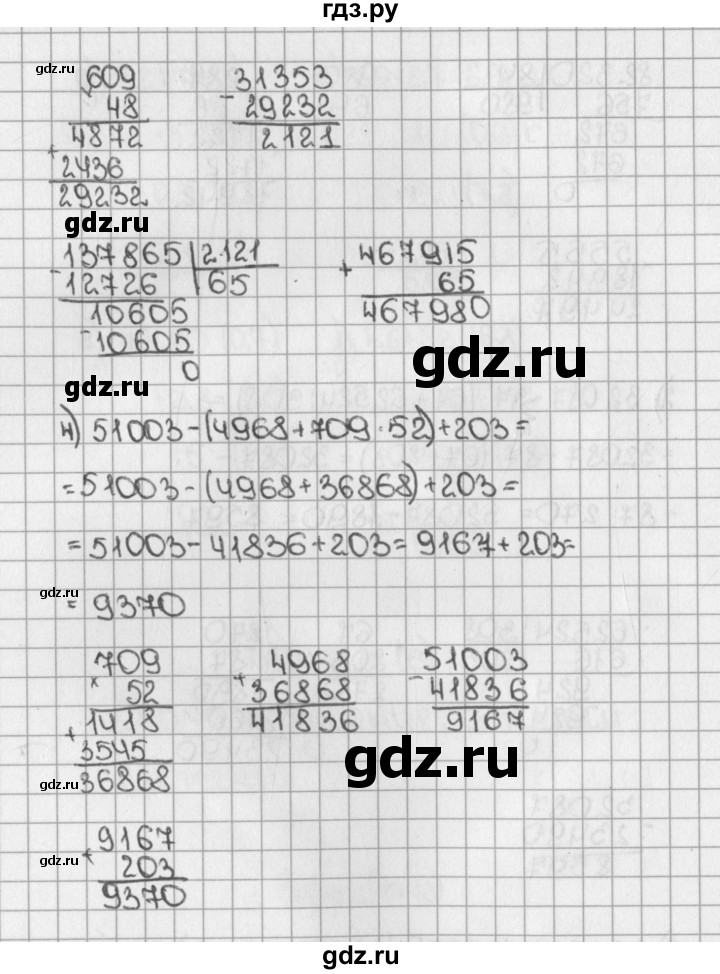 гдз.ру
gdz.ru
× 609
48
4872
+ 2436
29232
- 31353
29232
2121
gdz.ru
- 137865 | 2121
12726 | 65
10605
- 10605
0
+ 467915
65
467980
gdz.ru
gdz.ru
4) 51003-(4968+709·52)+203=
=51003-(4968+36868)+203=
=51003-41836+203=9167+203=
gdz.ru
=9370
709
× 52
1418
+ 3545
36868
+ 4968
36868
41836
- 51003
41836
9167
gdz.ru
gdz.ru
+ 9167
203
9370
gdz.ru
gdz.ru